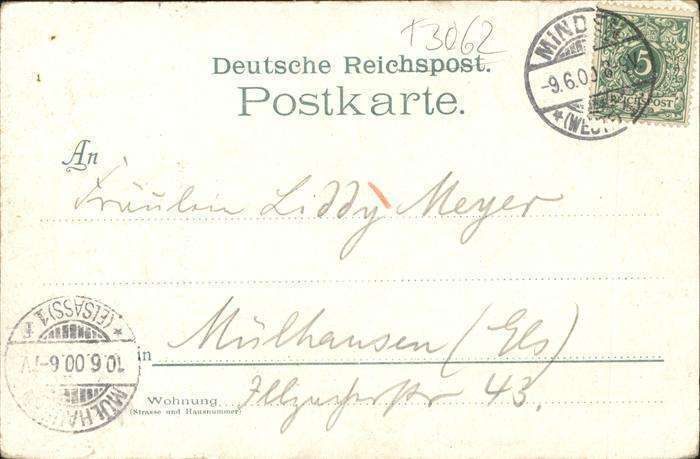 +3062
Deutsche Reichspost.
Postkarte.
MINDEN
-9.6.00
*(WEST
5
REICHSPOST
An
Fräulein Liddy Meyer
in Mülhausen (Els)
Wohnung 43.
(Strasse und Hausnummer)
*(ELSASS)1
10.6.00.6-7V
MÜLHAU